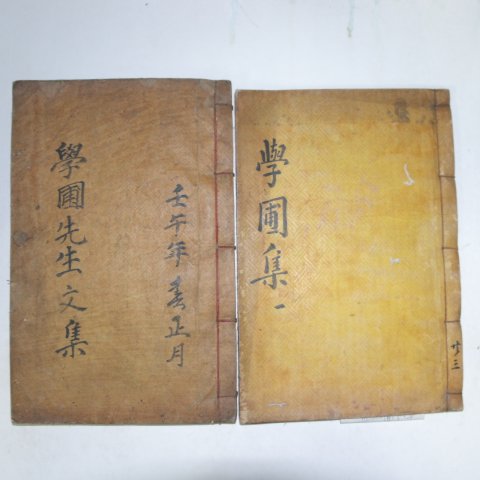 學圃先生文集
壬午年春正月
学圃集一
共三